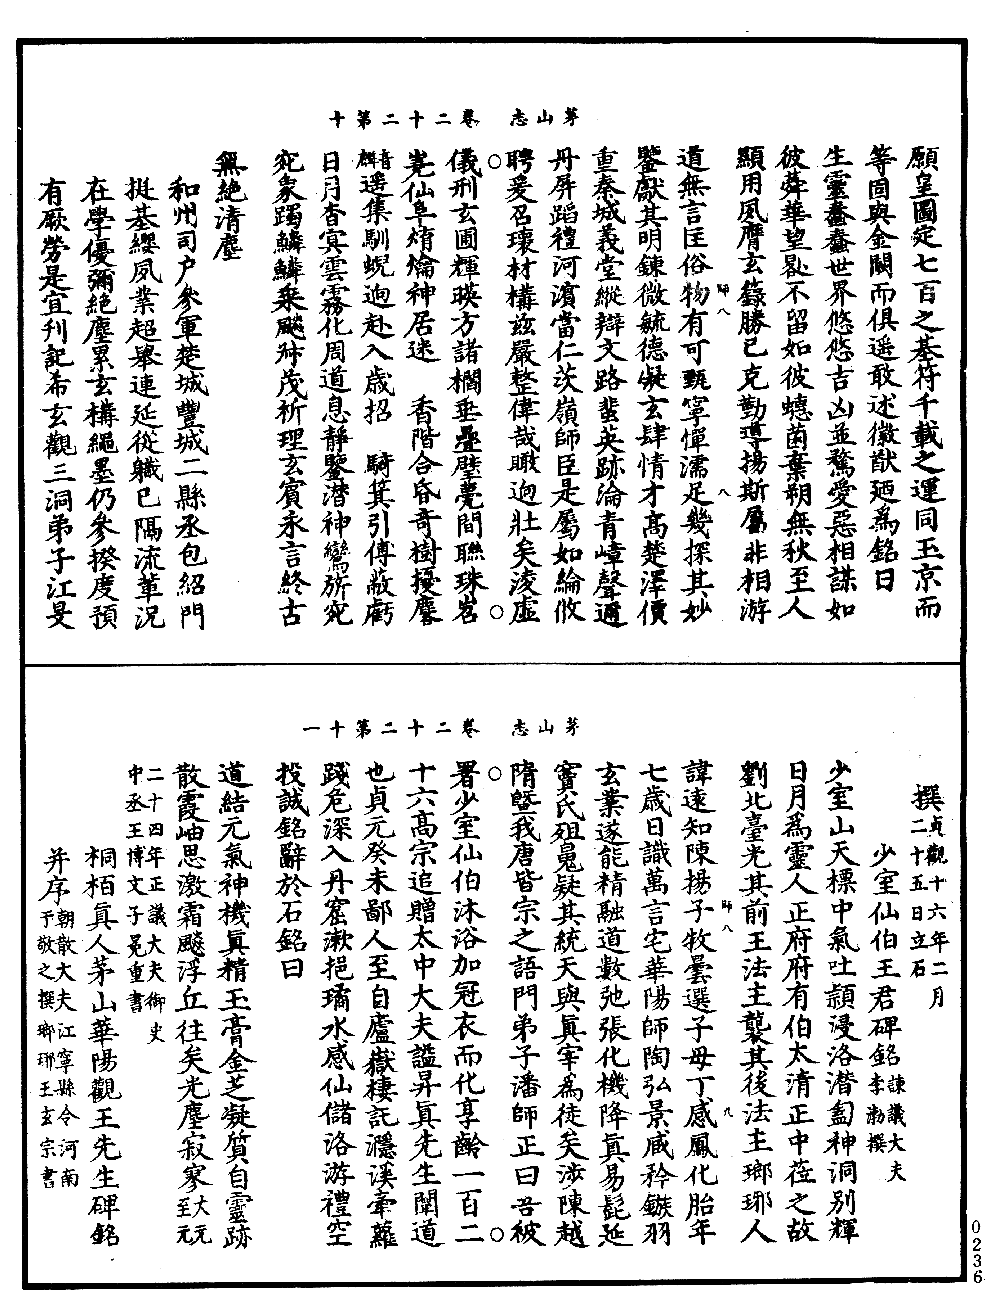 茅山志　卷二十二第十
願皇圖定七百之基符千載之運同玉京而
等固與金闕而俱遥敢述徽猷廼爲銘曰
生靈蠢蠢世界悠悠古凶並騖愛惡相謀如
彼蕣華望晷不留如彼蟪菌棄朔無秋至人
顯用夙膺玄籙勝已克勤導揚斯屬非相游
道無言匡俗物有可甄寧憚濡足幾探其妙
鑒猷其明鍊微毓德凝玄肆情才髙楚澤價
重秦城義堂縱辯文路蜚英跡淪青嶂聲通
丹屏蹈禮河濵當仁茨嶺師臣是屬如綸攸
聘爰召瓌材構兹嚴整偉哉瞰迥壯矣淩虚
儀刑玄圃輝暎方諸櫚垂疊璧甍間聯珠岧
嶤仙阜焴爚神居迷　香階合昏奇樹擾麏
麟遥集馴蜺逈赴入歲招　騎箕引傅敝虧
日月杳冥雲霧化周道息靜鑒潛神鸞旂究
兖象躅鱗鱗乗飈舛茂祈理玄賓永言終古
無絶清塵
和州司户參軍楚城豐城二縣丞包紹門
挺基纓夙業超舉連延從職已隔流輩况
在學優彌絶塵累玄構繩墨仍參揆度預
有厥勞是宜刋記布玄觀三洞弟子江旻
歸八
八
茅山志　卷二十二第十一
撰貞觀十六年二月
二十五日立石
少室仙伯王君碑銘諫議大夫
李渤撰
少室山天標中氣吐頴浸洛潛匈神洞别輝
日月爲靈人正府府有伯太清正中莅之故
劉北臺光其前王法主襲其後法主瑯琊人
諱遠知陳揚子牧曇選子母丁感鳳化胎年
七歲日識萬言宅華陽師陶弘景臧矜鏃羽
玄業遂能精融道數弛張化機降真易髭延
竇氏殂㒵疑其統天與真宰爲徒矣渉陳越
隋曁我唐皆宗之語門弟子潘師正曰吾被
署少室仙伯沐浴加冠衣而化享齡一百二
十六髙宗追贈太中大夫謚昇真先生聞道
也貞元癸未鄙人至自廬嶽棲託㶏溪牽蘿
踐危深入丹窟漱挹璚水感仙儲洛游禮空
投誠銘辭於石銘曰
道結元氣神機真精玉膏金芝凝質自靈跡
散霞岫思激霜飈浮丘往矣光塵寂寥大元
至元
二十四年正議大夫御史
中丞王博文子冕重書
桐栢真人茅山華陽觀王先生碑銘
并序朝散大夫江寧縣令河南
于敬之撰瑯琊王玄宗書
歸八
九
0236